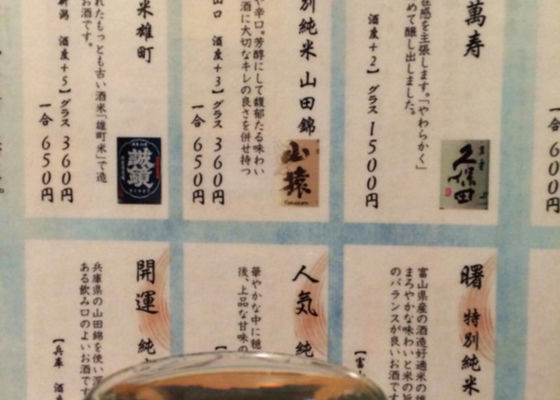 萬寿
在感を主張します。「やわらかく」
めて醸し出しました。
酒度+2】グラス 1500円
久保田
別純米 山田錦
や辛口。芳醇にして馥郁たる味わい
酒に大切なキレの良さを併せ持つ
山口 酒度+3】グラス 360円
一合 650円
山猿
米雄町
れたもっとも古い酒米「雄町米」で造
お酒です。
新潟 酒度+5】グラス 360円
一合 650円
誠鏡
曙 特別純米
富山県産の酒造好適米の雄
まろやかな味わいと米の旨
のバランスが良いお酒です
【富
人気 純
華やかな中に穏
後、上品な甘味の
開運 純
兵庫県の山田錦を使い
ある飲み口のよいお酒です
【兵庫 酒